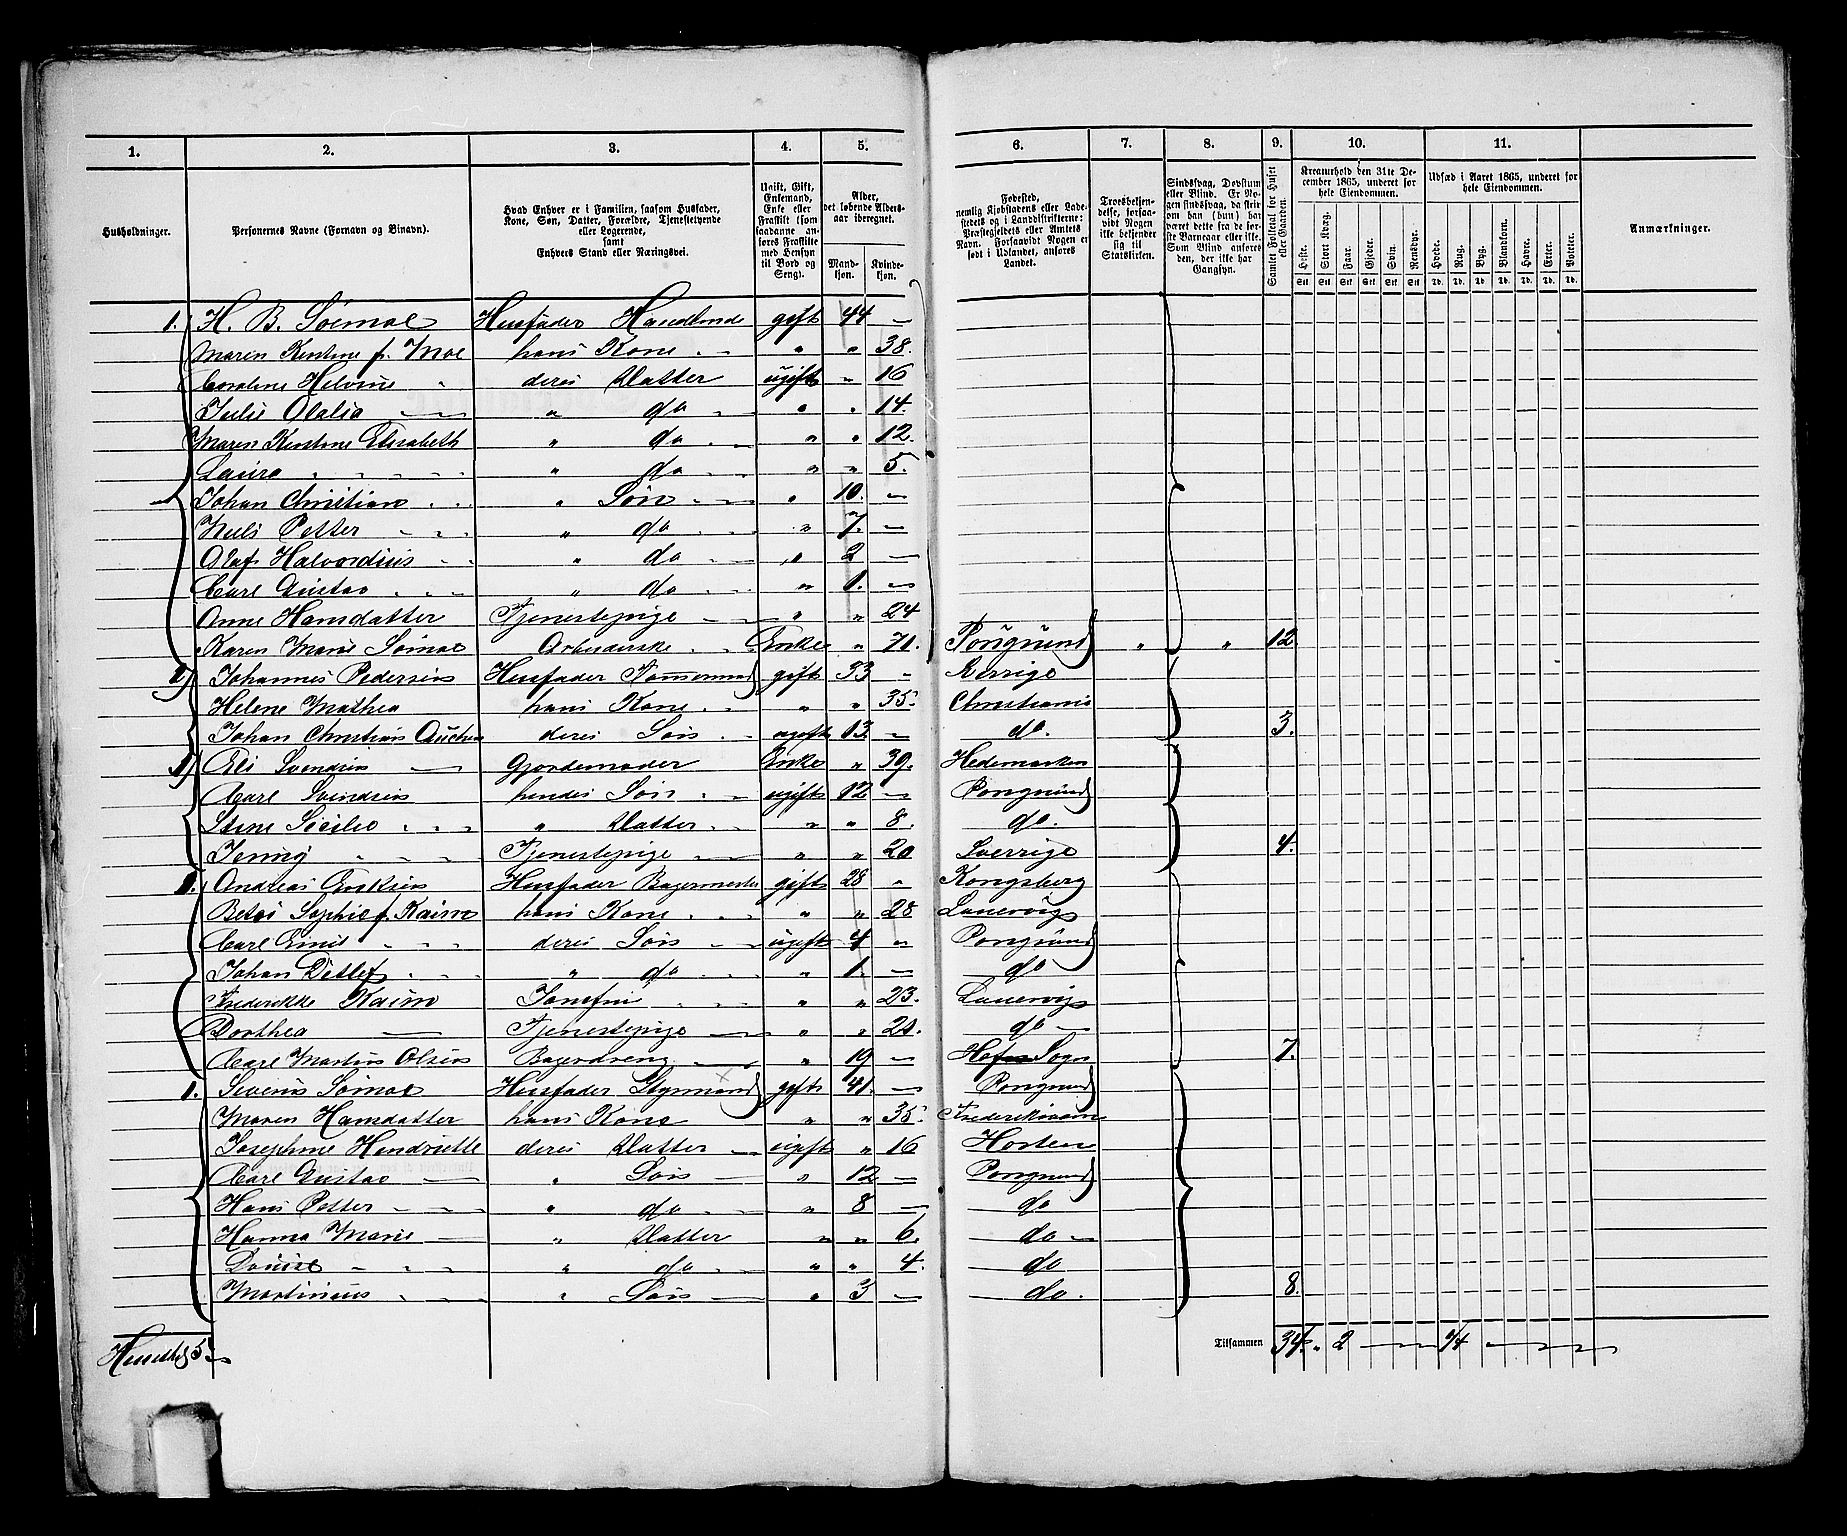 1. 2. 3. 4. 5. 6. 7. 8. 9. 10. 11.
Husholdninger.
Personernes Navne (Fornavn og Binavn).
Hvad Enhver er i Familien, saasom Husfader, Kone, Søn, Datter, Forældre, Tjenestetyende eller Logerende, samt Enhvers Stand eller Næringsvei.
Ugift, Gift, Enkemand, Enke eller Fraskilt (som saadanne anføres Fraskilte med Hensyn til Bord og Seng).
Alder, det løbende Aldersaar iberegnet.
Mandkjøn. Kvindekjøn.
Fødested, nemlig Kjøbstadens eller Ladestedets og i Landdistrikterne: Præstegjeldets eller Amtets Navn. Forsaavidt Nogen er født i Udlandet, anføres Landet.
Troesbekjendelse, forsaavidt Nogen ikke bekjender sig til Statskirken.
Sindssvag, Døvstum eller Blind. Er Nogen sindssvag, da skriv om han (hun) har været dette fra de første Barneaar eller ikke. Som Blind anføres den, der ikke har Gangsyn.
Samlet Folketal for Huset eller Gaarden.
Kreaturhold den 31te December 1865, underet for hele Eiendommen.
Heste. Stort Kvæg. Faar. Gjeder. Svin. Rensdyr.
Udsæd i Aaret 1865, underet for hele Eiendommen.
Hvede. Rug. Byg. Blandkorn. Havre. Erter. Poteter.
Anmærkninger.
Stk Stk Stk Stk Stk Stk Td. Td. Td. Td. Td. Td. Td.
1. H. B. Soimoe Husfader Handlende gift 44 —
Maren Kirstine f. Moe hans Kone „ „ 38.
Caroline Helvine deres Datter ugift „ 16
Julie Olalia „ do „ „ 14.
Maren Kirstine Elisabeth „ do „ „ 12.
Laura „ do „ „ 5.
Johan Christian „ Søn „ 10. —
Niels Petter „ do „ 7. —
Olaf Halvordius „ do „ 2 —
Carl Gustav „ do „ 1. —
Anne Hansdatter Tjenestepige „ „ 24
Karen Marie Soimoe Arbeiderske Enke „ 71. Porsgrund „ „ 12
Johannes Pedersen Husfader Tømermand gift 33 „ Sverrige
Helene Mathea hans Kone „ „ 35. Christiania
Johan Christian deres Søn ugift 13 — do. 3.
Eli Svendsen Gjordemoder Enke „ 39. Hedemarken
Carl Svendsen hendes Søn ugift 12 — Porsgrund
Stine Sicilie „ Datter „ „ 8. do.
Jenny Tjenestepige „ „ 20 Sverrige 4.
1. Andreas Eriksen Husfader Bagermester gift 28 „ Kongsberg
Betsi Sophie f. Kaim hans Kone „ „ 28 Laurvig
Carl Emil deres Søn ugift 4 „ Porsgrund
Johan Detlef „ do „ 1. — do
Frederikke Kaim Jomfru „ „ 23. Laurvig
Dorthea — Tjenestepige „ „ 20. do —
Carl Martin Olsen Bagerdreng „ 19 — Sogn 7.
1. Severin Soimoe Husfader Styrmand gift 41. — Porsgrund
Maren Hansdatter hans Kone „ „ 35 Frederiksværn
Josephine Hendriette deres Datter ugift „ 16 Horten
Carl Gustav „ Søn „ 12 — Porsgrund
Hans Petter „ do „ 8 — do
Hanna Marie „ Datter „ „ 6. do —
Louise „ do „ „ 4. do
Martinius „ Søn „ 3 — do. 8.
5 Tilsammen 34. „ 2 — 1/4 —